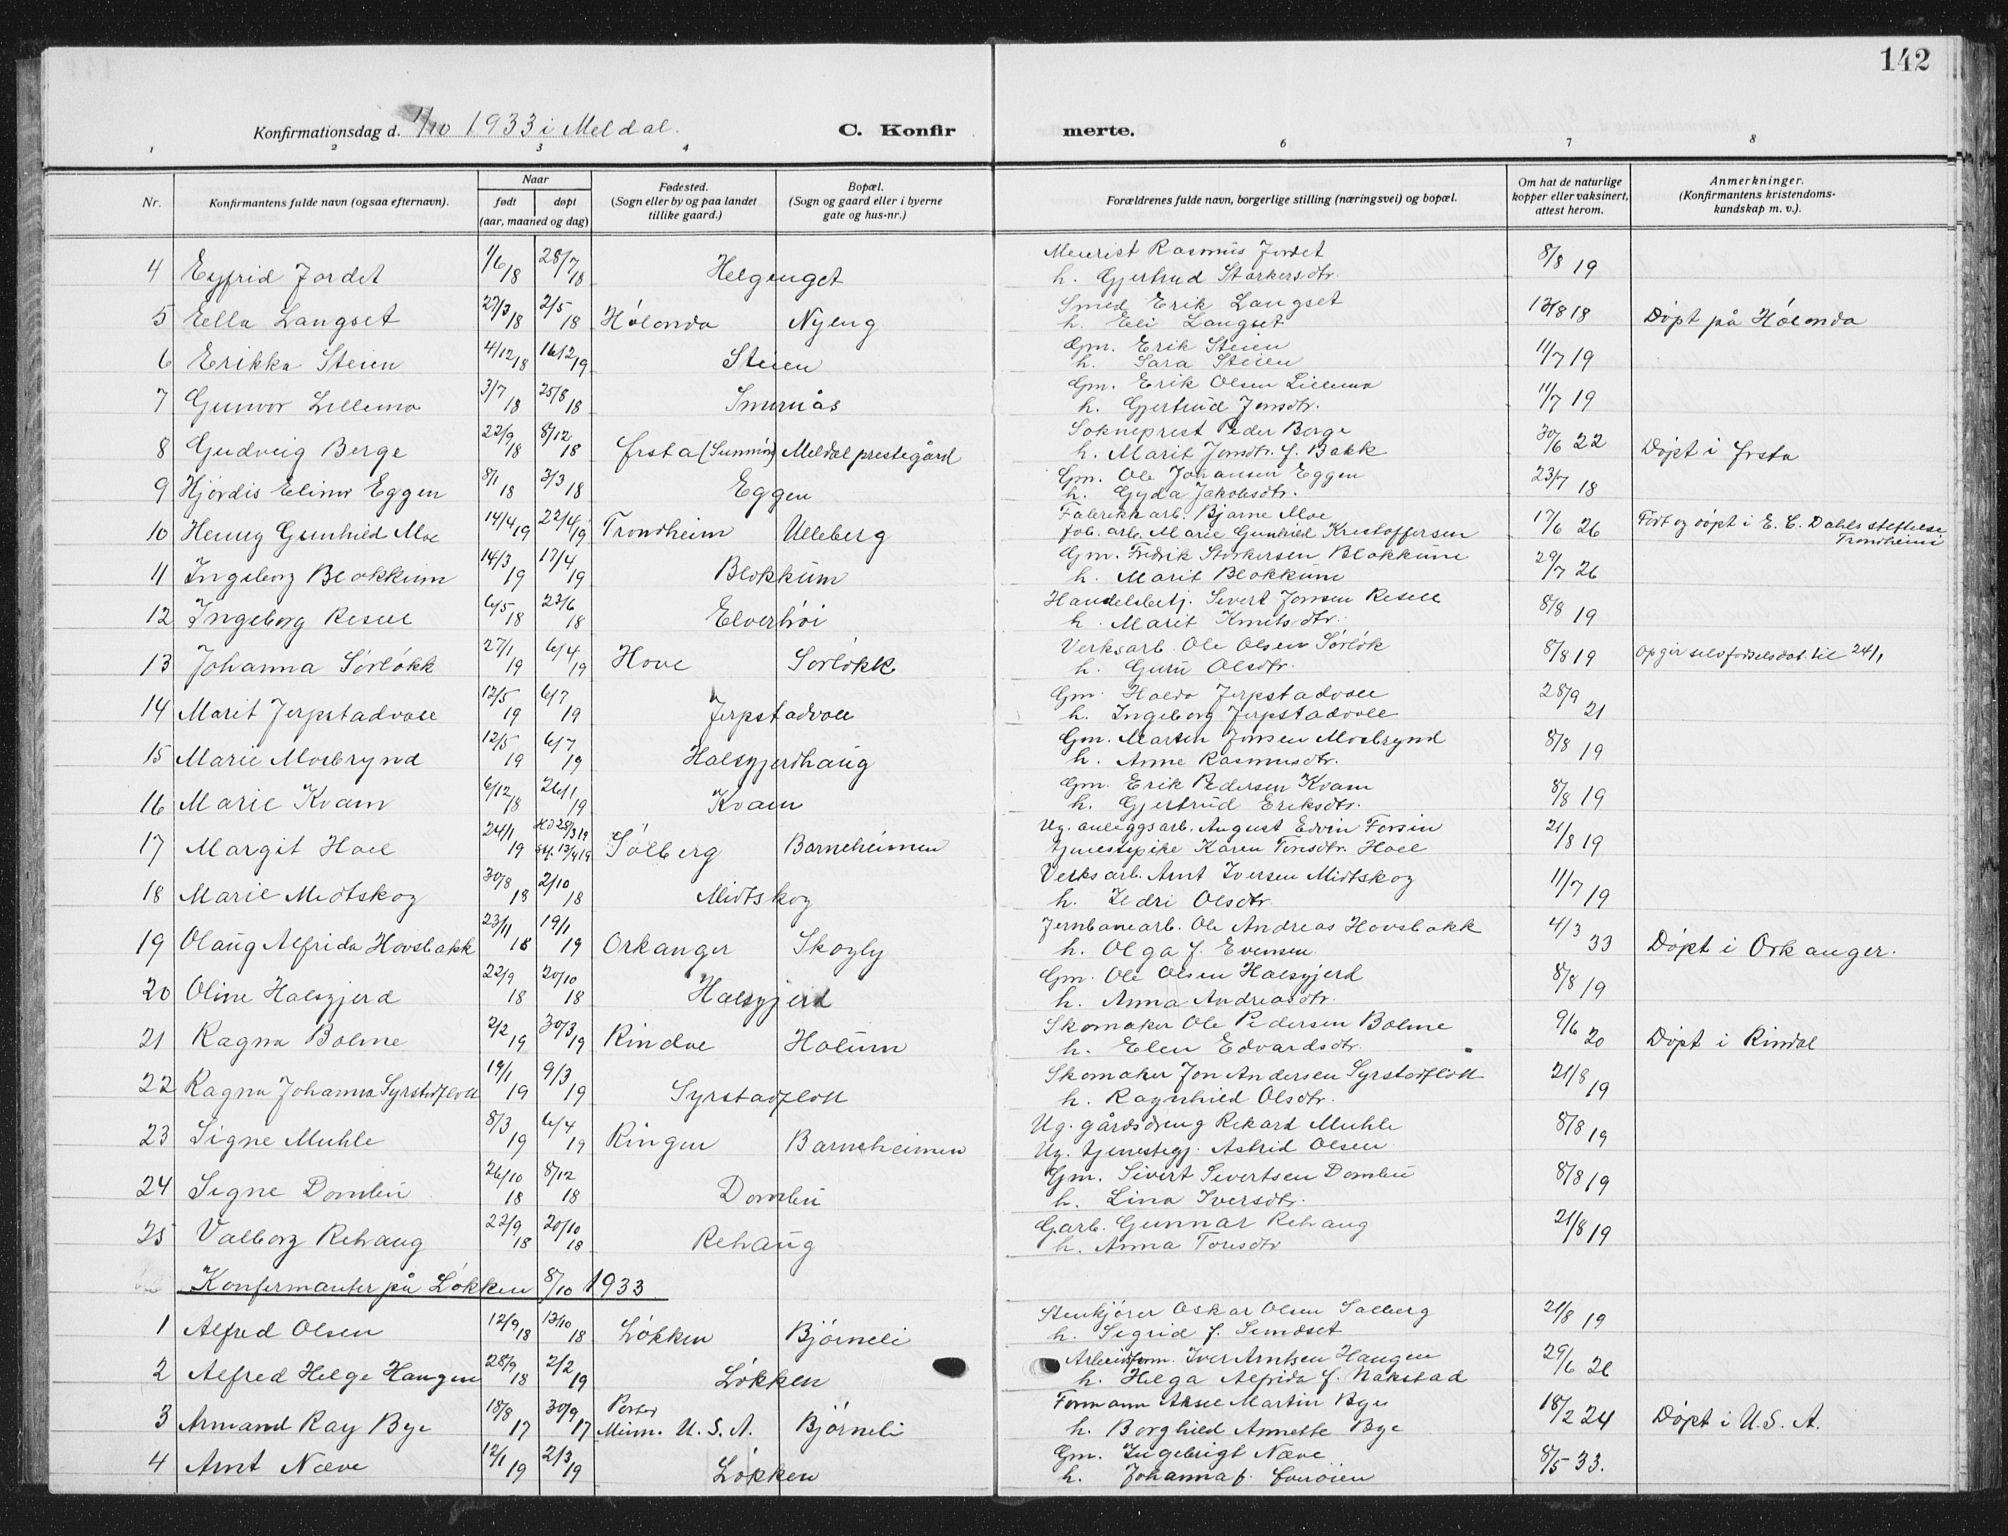 142
Konfirmationsdag d. 1/10 1933 i Meldal. C. Konfirmerte.
1 2 3 4 6 7 8
Nr. Konfirmantens fulde navn (ogsaa efternavn). Naar født døpt (aar, maaned og dag) Fødested. (Sogn eller by og paa landet tillike gaard.) Bopæl. (Sogn og gaard eller i byerne gate og hus-nr.) Forældrenes fulde navn, borgerlige stilling (næringsvei) og bopæl. Om hat de naturlige kopper eller vaksinert, attest herom. Anmerkninger. (Konfirmantens kristendomskundskap m. v.).
4 Eyfrid Jordet 1/6 18 28/7 18 Helgenget Meierist Rasmus Jordet 8/8 19
h. Gjertrud Størkersdtr.
5 Ella Langset 27/3 18 2/5 18 Hølonda Nyeng Smed Erik Langset 13/8 18 Døpt på Hølonda
h. Eli Langset
6 Erikka Steien 4/12 18 16/2 19 Steien Gm. Erik Steien 11/7 19
h. Sara Steien
7 Gunvor Lillemo 3/7 18 25/8 18 Smurnås Gm. Erik Olsen Lillemo 11/7 19
h. Gjertrud Jonsdtr.
8 Gudveig Berge 22/9 18 8/12 18 Ørsta (Sunnmør) Meldal prestegård Sokneprest Peder Berge 30/6 22 Døpt i Ørsta
h. Marit Jonsdtr. f. Bakk
9 Hjørdis Elinor Eggen 8/1 18 3/3 18 Eggen Gm. Ole Johansen Eggen 23/7 18
h. Gyda Jakobsdtr.
10 Henny Gunhild Moe 14/4 19 22/4 19 Trondheim Ulleberg Fabrikkarb. Bjarne Moe 17/6 26 Født og døpt i E. C. Dahls stiftelse Trondheim
fab. arb. Marie Gunhild Kristoffersen
11 Ingeborg Blokkum 14/3 19 17/4 19 Blokkum Gm. Fredrik Størkersen Blokkum 29/7 26
h. Marit Blokkum
12 Ingeborg Resell 6/5 18 23/6 18 Elverhøi Handelsbetj. Sivert Jonsen Resell 8/8 19
h. Marit Knutsdtr.
13 Johanna Sørløkk 27/1 19 6/4 19 Hove Sørløkk Verksarb. Ole Olsen Sørløk 8/8 19 Opgir selv fødselsdat. til 24/1
h. Guru Olsdtr.
14 Marit Jerpstadvoll 12/5 19 6/7 19 Jerpstadvoll Gm. Haldo Jerpstadvoll 28/9 21
h. Ingeborg Jerpstadvoll
15 Marie Mosbrynd 12/5 19 6/7 19 Halsgjerdhaug Gm. Martin Jonsen Mosbrynd 8/8 19
h. Anne Rasmusdtr.
16 Marie Kvam 6/12 18 26/1 19 Kvam Gm. Erik Pedersen Kvam 8/8 19
h. Gjertrud Eriksdtr.
17 Margit Hoel 24/1 19 HD 28/3 19 Stf. 13/4 19 Solberg Barneheimen Ug. anleggsarb. August Edvin Forsin 21/8 19
tjenestepike Karen Toresdtr. Hoel
18 Marie Midtskog 30/8 18 2/10 18 Midtskog Verksarb. Arnt Iversen Midtskog 11/7 19
h. Ildri Olsdtr.
19 Olaug Alfrida Hovsbakk 23/11 18 19/1 19 Orkanger Skogly Jernbanearb. Ole Andreas Hovsbakk 4/3 33 Døpt i Orkanger.
h. Olga f. Evensen
20 Oline Halsgjerd 22/9 18 20/10 18 Halsgjerd Gm. Ole Olsen Halsgjerd 8/8 19
h. Anna Andreasdtr.
21 Ragna Bolme 2/2 19 30/3 19 Rindal Holum Skomaker Ole Pedersen Bolme 9/6 20 Døpt i Rindal
h. Elen Edvardsdtr.
22 Ragna Johanna Syrstadfloll 19/1 19 9/3 19 Syrstadfloll Skomaker Jon Andersen Syrstadfloll 21/8 19
h. Ragnhild Olsdtr.
23 Signe Muhle 8/3 19 6/4 19 Ringen Barneheimen Ug. gårdsdreng Rikard Muhle 8/8 19
Ug. tjenestepj. Astrid Olsen
24 Signe Dombu 26/10 18 8/12 18 Dombu Gm. Sivert Sivertsen Dombu 8/8 19
h. Lina Iversdtr.
25 Valborg Rehaug 22/9 18 20/10 18 Rehaug Garb. Gunnar Rehaug 21/8 19
h. Anna Toresdtr
Konfirmanter på Løkken 8/10 1933
1 Alfred Olsen 12/9 18 13/10 18 Løkken Bjørneli Stenkjører Oskar Olsen Solberg 21/8 19
h. Sigrid f. Sundset
2 Alfred Helge Haugen 28/9 18 2/2 19 Løkken Arbeidsform. Iver Arntsen Haugen 29/6 26
h. Helga Alfrida f. Nakstad
3 Armand Ray Bye 18/8 17 30/9 17 Porter Minn. U. S. A. Bjørneli Formann Aksel Martin Bye 18/2 24 Døpt i U. S. A.
h. Borghild Annette Bye
4 Arnt Næve 12/1 19 2/3 19 Løkken Gm. Ingebrigt Næve 8/5 33.
h. Johanna f.